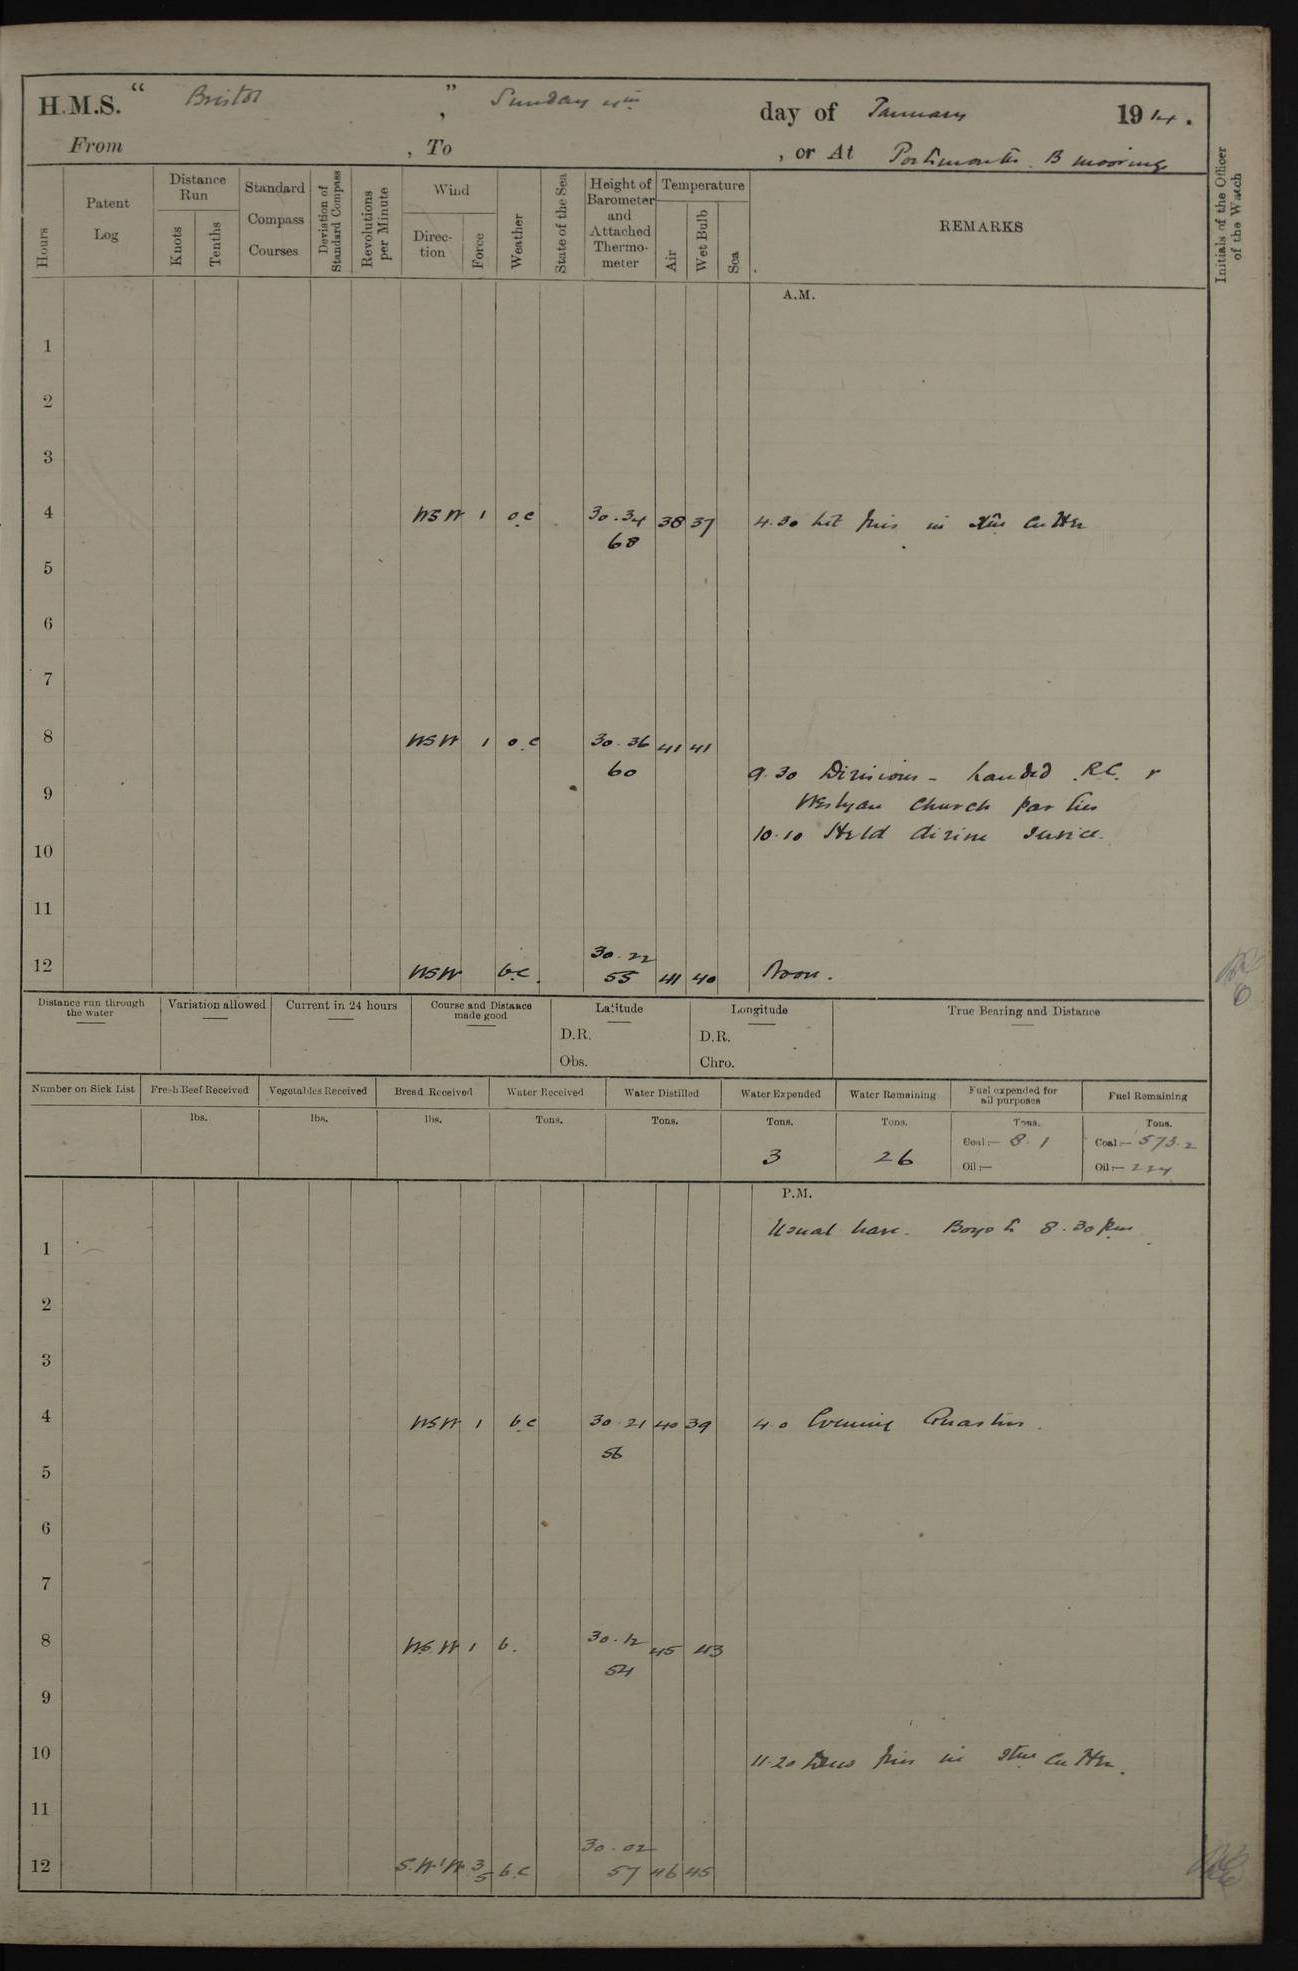 H.M.S. “ Bristol ”, Sunday 4th day of January 1914.
From , To , or At Portsmouth. B moorings
Hours
Patent Log
Distance Run
Knots
Tenths
Standard Compass Courses
Deviation of Standard Compass
Revolutions per Minute
Wind
Direction
Force
Weather
State of the Sea
Height of Barometer and Attached Thermometer
Temperature
Air
Wet Bulb
Sea
REMARKS
Initials of the Officer of the Watch
A.M.
1
2
3
4 WSW 1 o.c 30.34 38 37 4.30 Lit fires in stm cutter
68
5
6
7
8 WSW 1 o.c 30.36 41 41
60
9.30 Divisions - landed R.C. &
9 Wesleyan Church parties
10.10 Held divine service.
10
11
30.22
12 WSW b.c. 55 41 40 Noon.
Distance run through the water
Variation allowed
Current in 24 hours
Course and Distance made good
Latitude
D.R.
Obs.
Longitude
D.R.
Chro.
True Bearing and Distance
Number on Sick List
Fresh Beef Received
lbs.
Vegetables Received
lbs.
Bread Received
lbs.
Water Received
Tons.
Water Distilled
Tons.
Water Expended
Tons.
3
Water Remaining
Tons.
26
Fuel expended for all purposes
Tons.
Coal:— 8.1
Oil:—
Fuel Remaining
Tons.
Coal:— 573.2
Oil:— 224
P.M.
Usual leave. Boys to 8.30 pm
1
2
3
4 WSW 1 b.c 30.21 40 39 4.0 Evening Quarters.
56
5
6
7
8 W.S.W 1 b. 30.12 45 43
54
9
10
11.20 Drew fires in stm cutter.
11
30.02
12 S.W'W 3/5 b.c 57 46 45